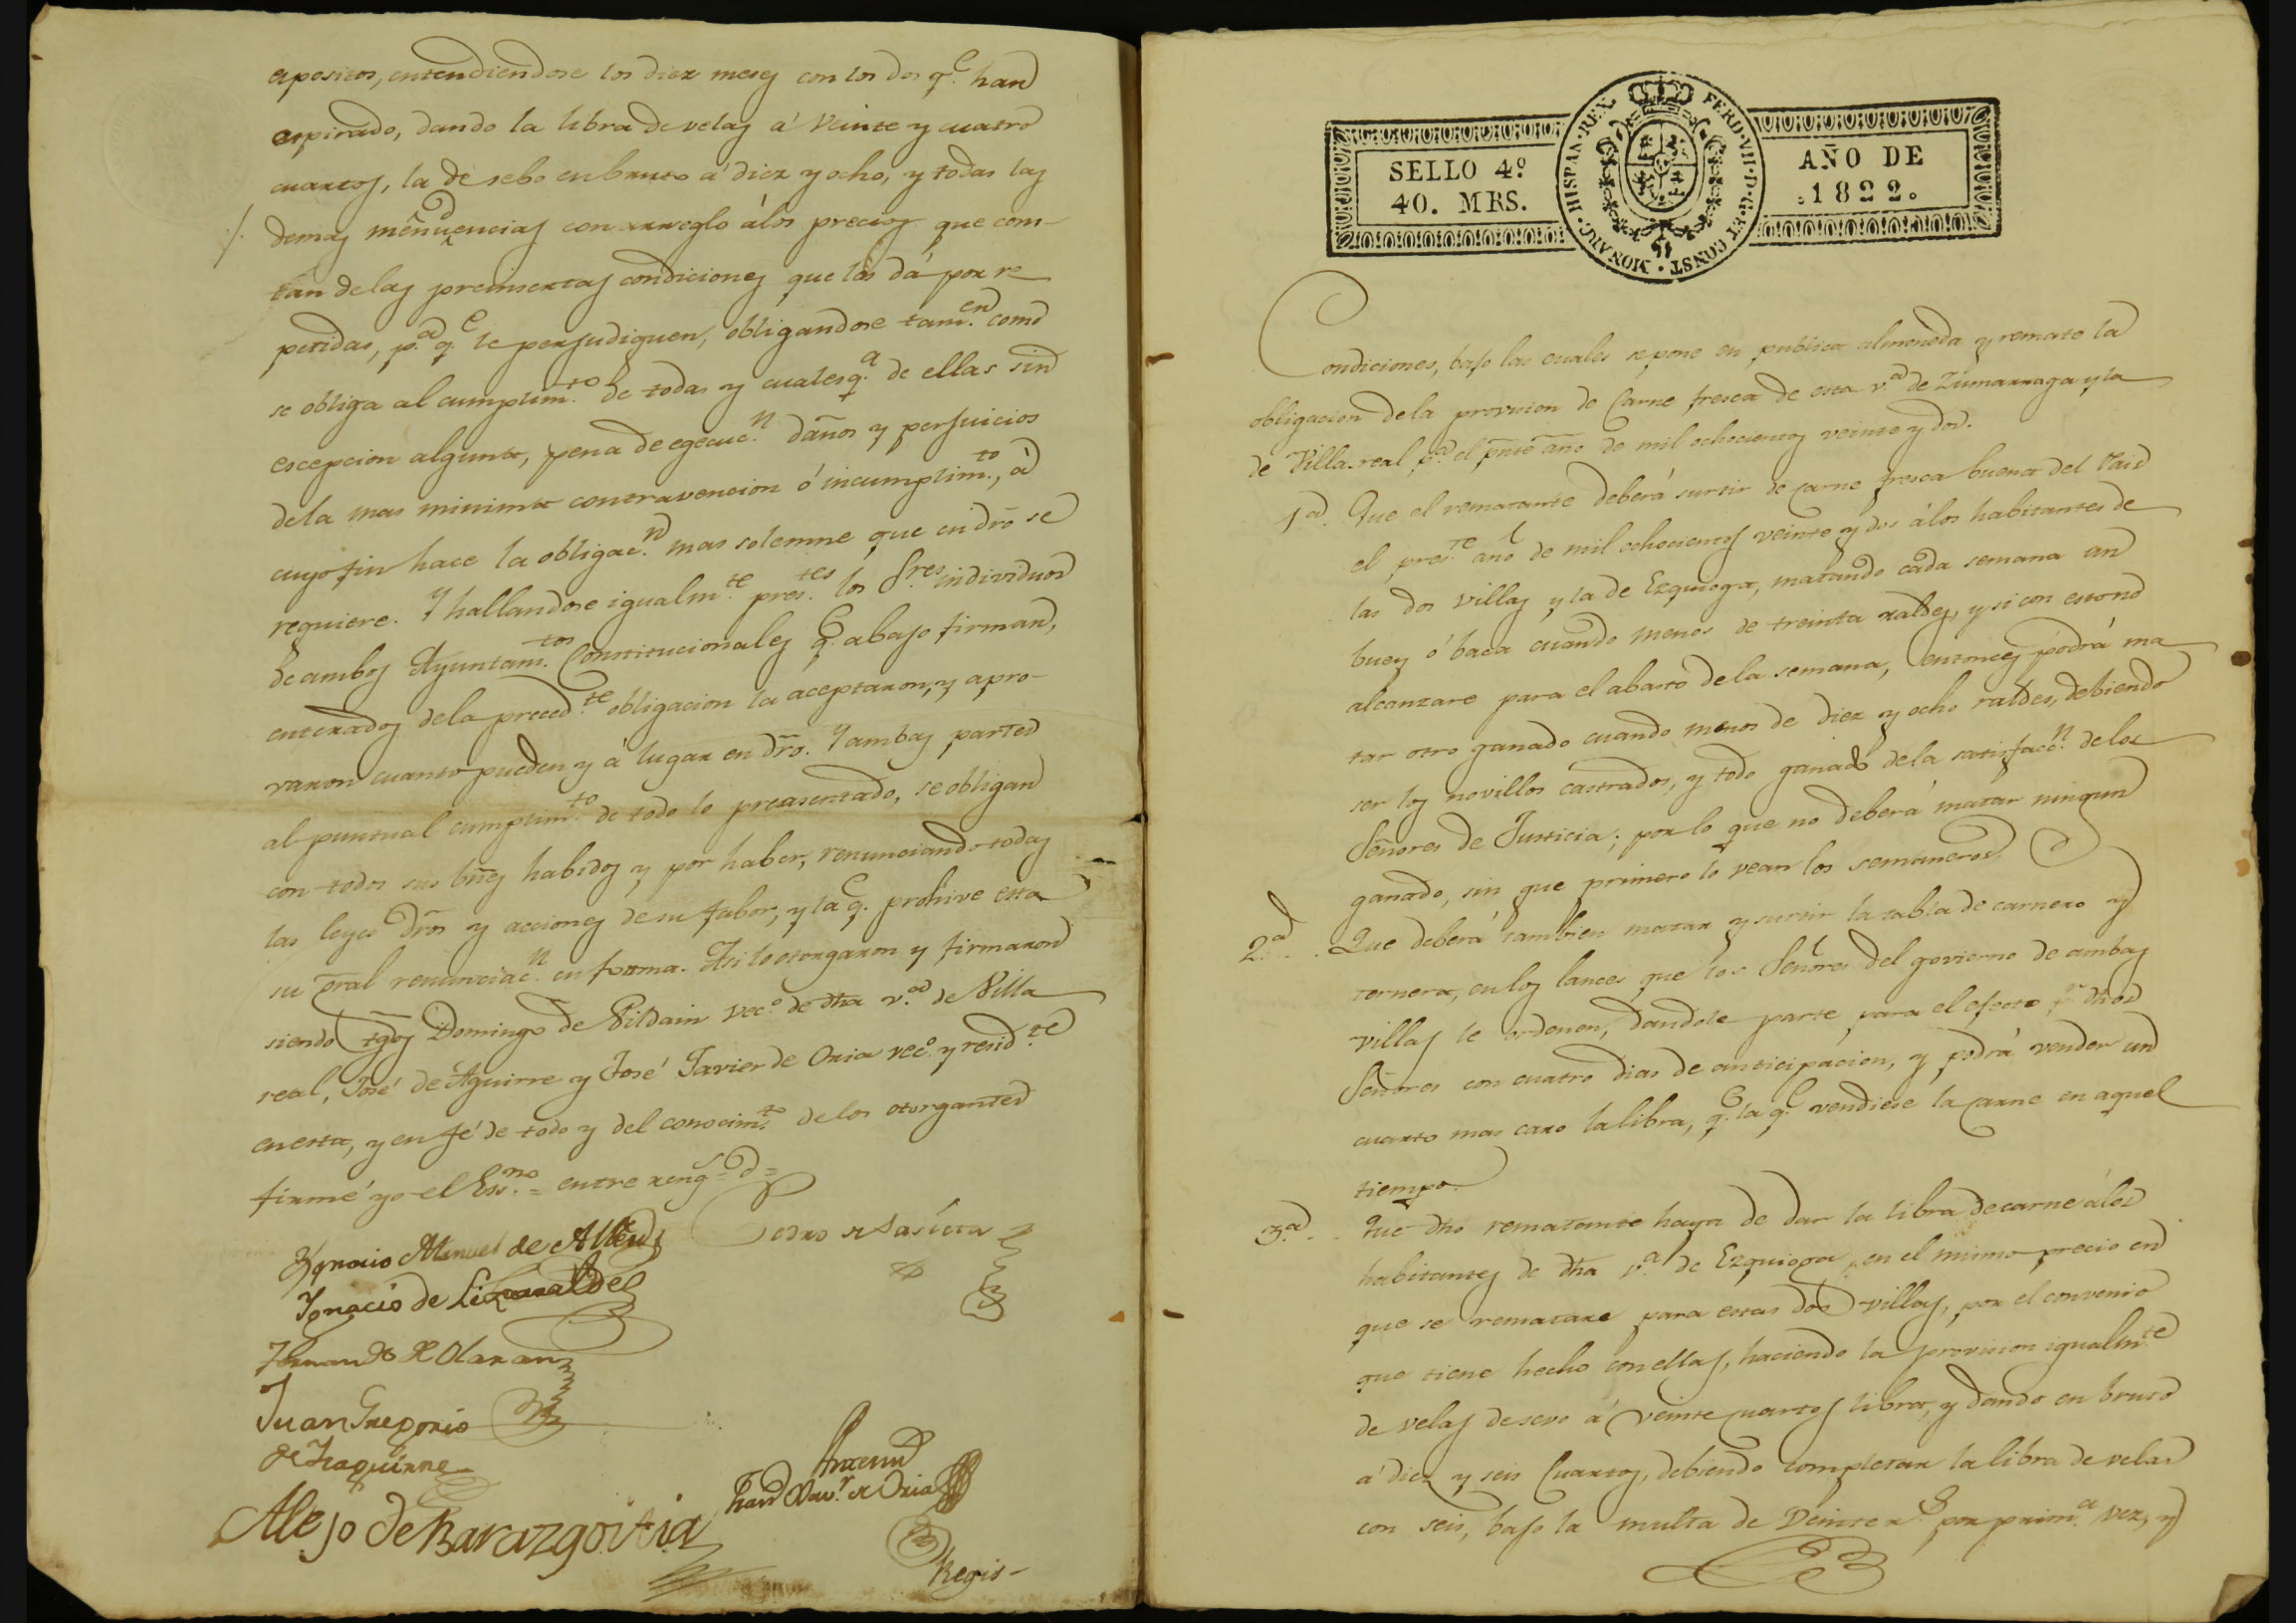 expositos, entendiendose los diez meses con los dos q.e han
espirado, dando la libra de velas á veinte y cuatro
cuartos, la de sebo en bruto á diez y ocho, y todas las
demas menudencias con arreglo á los precios que com-
tan de las preinsertas condiciones que las dá por re
petidas, p.a q.e le perjudiquen, obligandose tam.en como
se obliga al cumplim.to de todas y cualesq.a de ellas sin
escepcion alguna, pena de egecuc.n daños y perjuicios
de la mas minima contravencion ó incumplim.to, á
cuyo fin hace la obligac.n mas solemne que en dro se
requiere. Y hallandose igualm.te pres.tes los S.res individuos
de ambos Ayuntam.tos Constitucionales q.e abajo firman,
enterados de la preced.te obligacion la aceptaron, y apro-
varon cuanto pueden y á lugar en dro. Y ambas partes
al puntual cumplim.to de todo lo preasentado, se obligan
con todos sus bñes habidos y por haber, renunciando todas
las leyes dros y acciones de su fabor, y la q.e prohive esta
su gral renunciac.n en forma. Asi lo otorgaron y firmaron
siendo tgos Domingo de Vildain vec.o de dha v.a de Villa
real, José de Aguirre y José Javier de Oria vec.o y resid.te
en esta, y en fé de todo y del conocim.to de los otorgantes
firmé yo el Ess.no = entre reng.s = d =
Ygnacio Manuel de
Pedro de Sasieta
Ygnacio de Lizarralde
Fernando de Olaran
Juan Gregorio
de Yzaguirre
Antemi
Fran.co Xav.r de Oria
Alejo de Barazgoitia
Regis-
SELLO 4º
40. MRS.
HISPAN·REX· FERD·VII·D·G·ET CONST·MONARC·
AÑO DE
1822.
Condiciones, bajo las cuales se pone en publica almoneda y remate la
obligacion de la provision de Carne fresca de esta v.a de Zumarraga y la
de Villa-real p.a el pnte año de mil ochocientos veinte y dos.
1.a Que el rematante deberá surtir de Carne fresca buena del Pais
el pres.te año de mil ochocientos veinte y dos á los habitantes de
las dos villas y la de Ezquioga, matando cada semana un
buey ó baca cuando menos de treinta raldes, y si con esto no
alcanzare para el abasto de la semana, entonces podrá ma
tar otro ganado cuando menos de diez y ocho raldes, debiendo
ser los novillos castrados, y todo ganado de la satisfacc.n de los
Señores de Justicia; por lo que no deberá matar ningun
ganado, sin que primero lo vean los semaneros.
2.a Que deberá tambien matar y surtir la tabla de carnero y
ternera, en los lances que los Señores del govierno de ambas
villas le ordenen, dandole parte para el efecto p.r dhos
Señores con cuatro dias de anticipacion, y podrá vender un
cuarto mas caro la libra, q.e la q.e vendiese la Carne en aquel
tiempo.
3.a Que dho rematante haya de dar la libra de carne á los
habitantes de dha v.a de Ezquioga, en el mismo precio en
que se rematare para estas dos villas, por el convenio
que tiene hecho con ellas, haciendo la provision igualm.te
de velas de sevo á veinte cuartos libra, y dando en bruto
á diez y seis Cuartos, debiendo completar la libra de velas
con seis, bajo la multa de Veinte r.s por prim.a vez, y